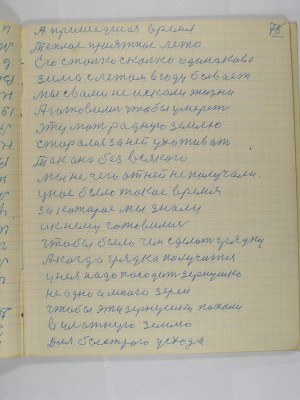 78
А пришедшая время
Теплое приятное лето
Его столко сколко одинаково
зима с летом в году бывает
Мы с вами не искали жизни
А готовились чтобы умереть
Эту мат радную землю
старался за ней ухаживат
Так она без всякого
мы не чего от ней не получали.
у нас было такое время
За которое мы знали
и к нему готовились
чтобы было чем сделат грядку
А когда грядка получится
у нея надо посодит зернушко
не одно а много зерен
чтобы эти зернушки попали
в влажную землю
для быстрого усхода